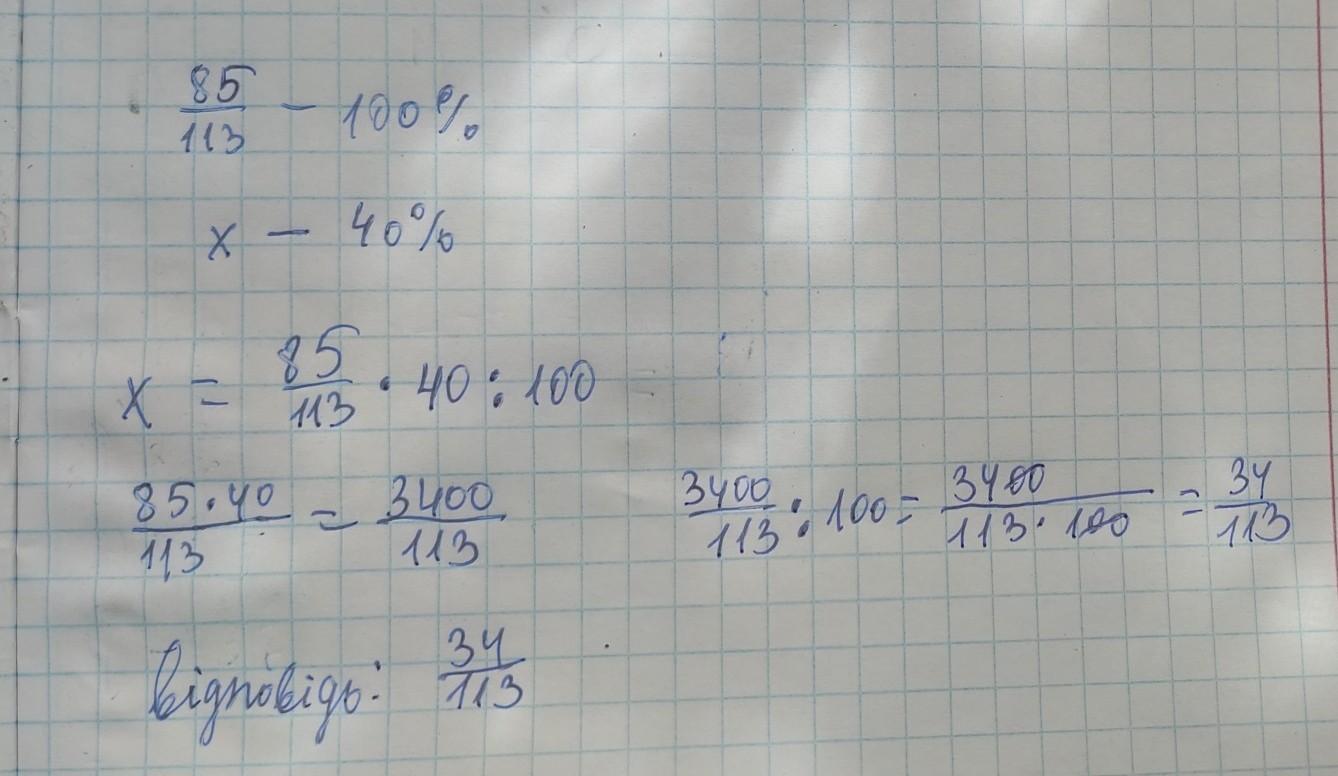 85/113 — 100%
x — 40%
x = 85/113 · 40 : 100
85·40/113 = 3400/113
3400/113 : 100 = 3400/113·100 = 34/113
відповідь: 34/113